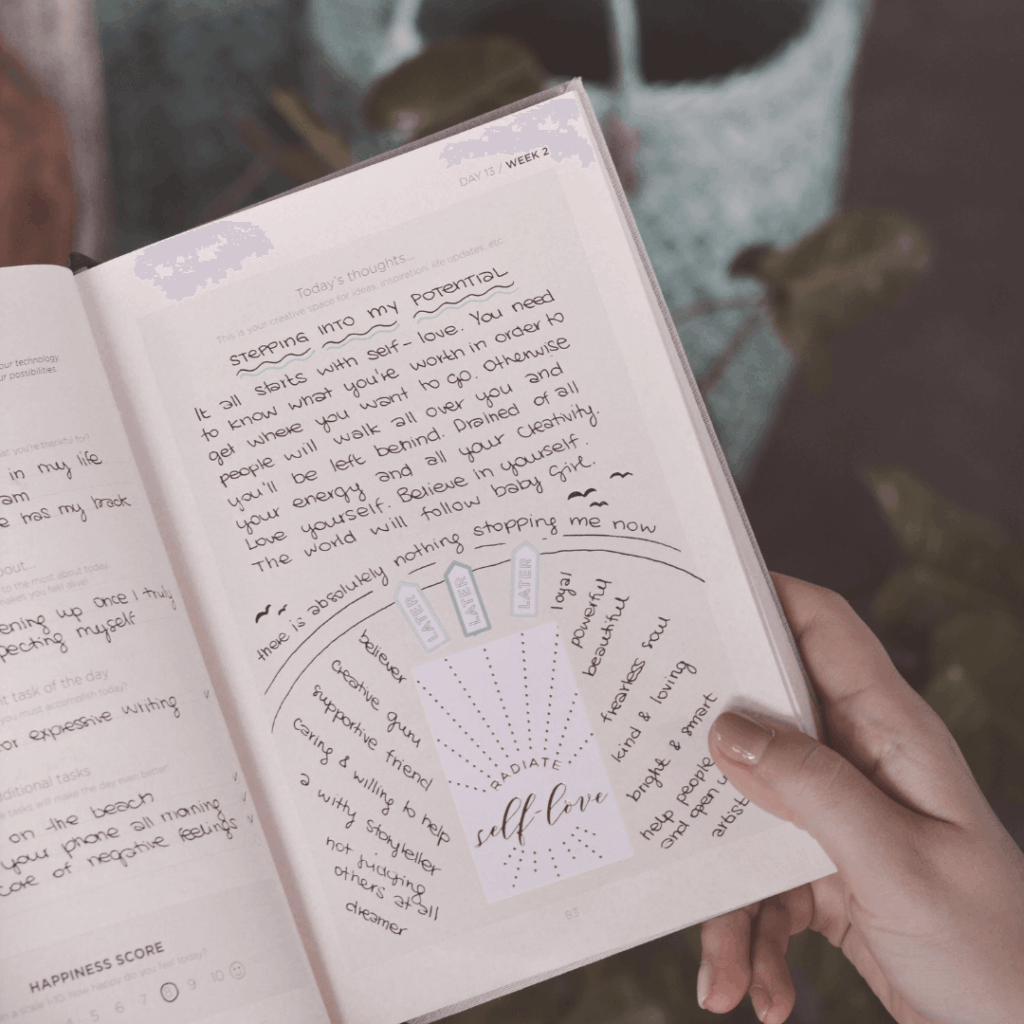 our technology
ur possibilities.
you're thankful for?
in my life
am
e has my back
bout...
to the most about today
makes you feel alive!
ening up once I truly
pecting myself
nt task of the day
you must accomplish today?
or expressive writing
dditional tasks
e tasks will make the day even better!
on the beach
your phone all morning
core of negative feelings
HAPPINESS SCORE
n a scale 1-10. How happy do you feel today?
4 5 6 7 8 9 10
DAY 13 / WEEK 2
Today's thoughts...
This is your creative space for ideas, inspiration, life updates, etc.
STEPPING INTO MY POTENTIAL
It all starts with self-love. You need
to know what you're worth in order to
get where you want to go. Otherwise
people will walk all over you and
you'll be left behind. Drained of all
your energy and all your creativity.
Love yourself. Believe in yourself.
The world will follow baby girl.
there is absolutely nothing stopping me now
LATER
LATER
LATER
believer
creative guru
supportive friend
caring & willing to help
a witty storyteller
not judging
others at all
dreamer
RADIATE
self-love
loyal
powerful
beautiful
fearless soul
kind & loving
bright & smart
help people
and open u
artist
83